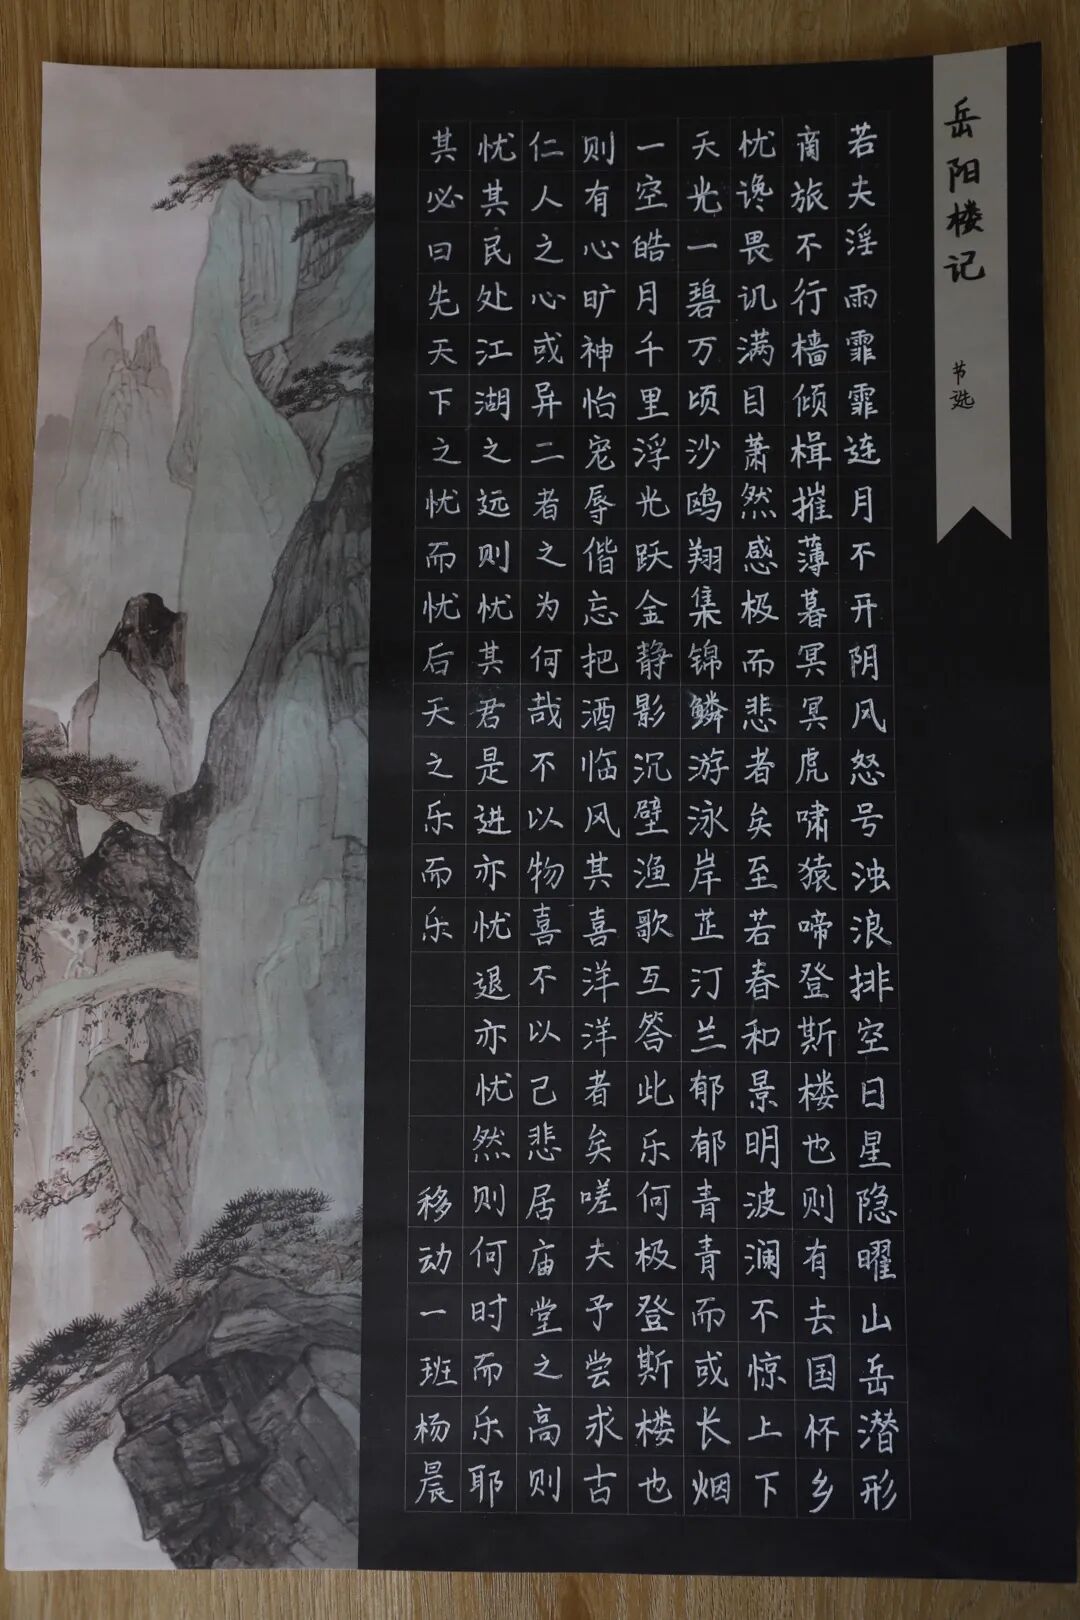 岳阳楼记
节选
若夫淫雨霏霏连月不开阴风怒号浊浪排空日星隐曜山岳潜形
商旅不行樯倾楫摧薄暮冥冥虎啸猿啼登斯楼也则有去国怀乡
忧谗畏讥满目萧然感极而悲者矣至若春和景明波澜不惊上下
天光一碧万顷沙鸥翔集锦鳞游泳岸芷汀兰郁郁青青而或长烟
一空皓月千里浮光跃金静影沉壁渔歌互答此乐何极登斯楼也
则有心旷神怡宠辱偕忘把酒临风其喜洋洋者矣嗟夫予尝求古
仁人之心或异二者之为何哉不以物喜不以己悲居庙堂之高则
忧其民处江湖之远则忧其君是进亦忧退亦忧然则何时而乐耶
其必曰先天下之忧而忧后天之乐而乐
移动一班杨晨